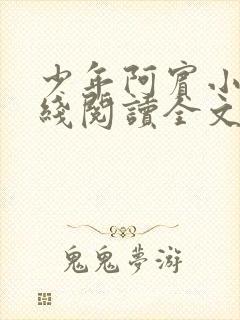 少年阿賓小
綫閱讀全文
鬼鬼夢游